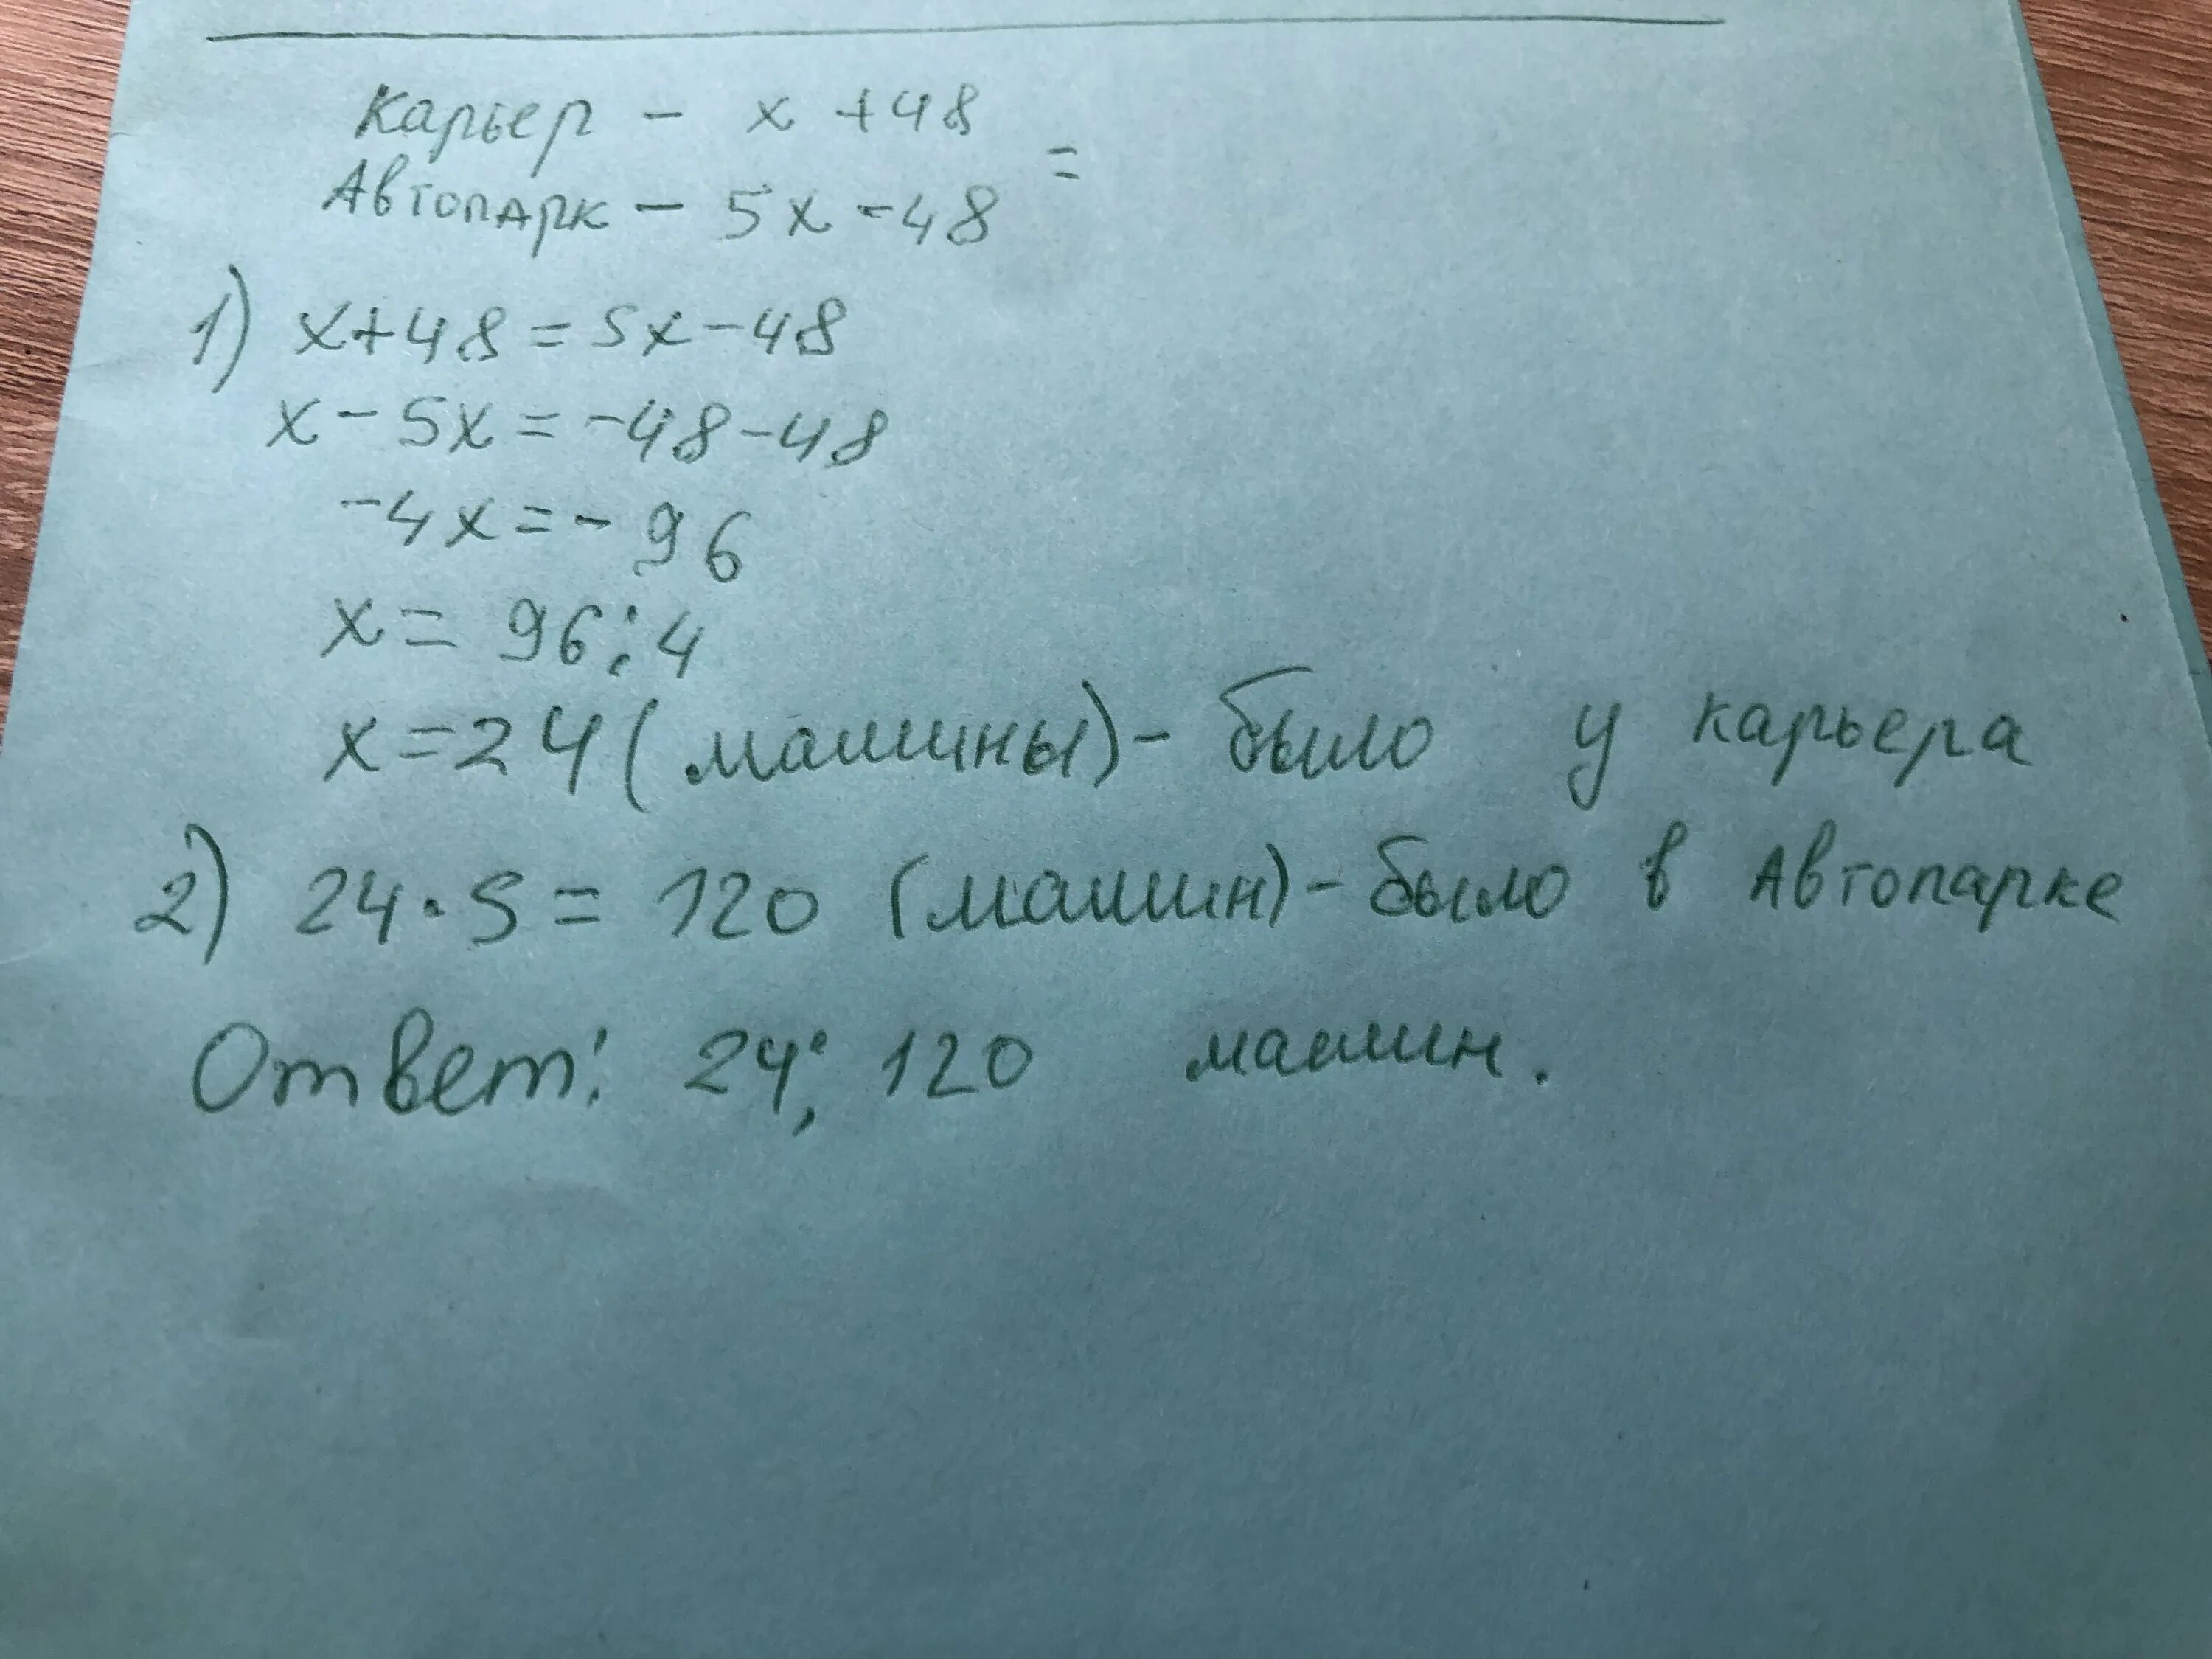 Карьер - x +48
=
Автопарк - 5x -48
1) x+48=5x-48
x-5x=-48-48
-4x=-96
x=96:4
x=24(машины)-было у карьера
2) 24·5=120 (машин)-было в Автопарке
Ответ: 24; 120 машин.